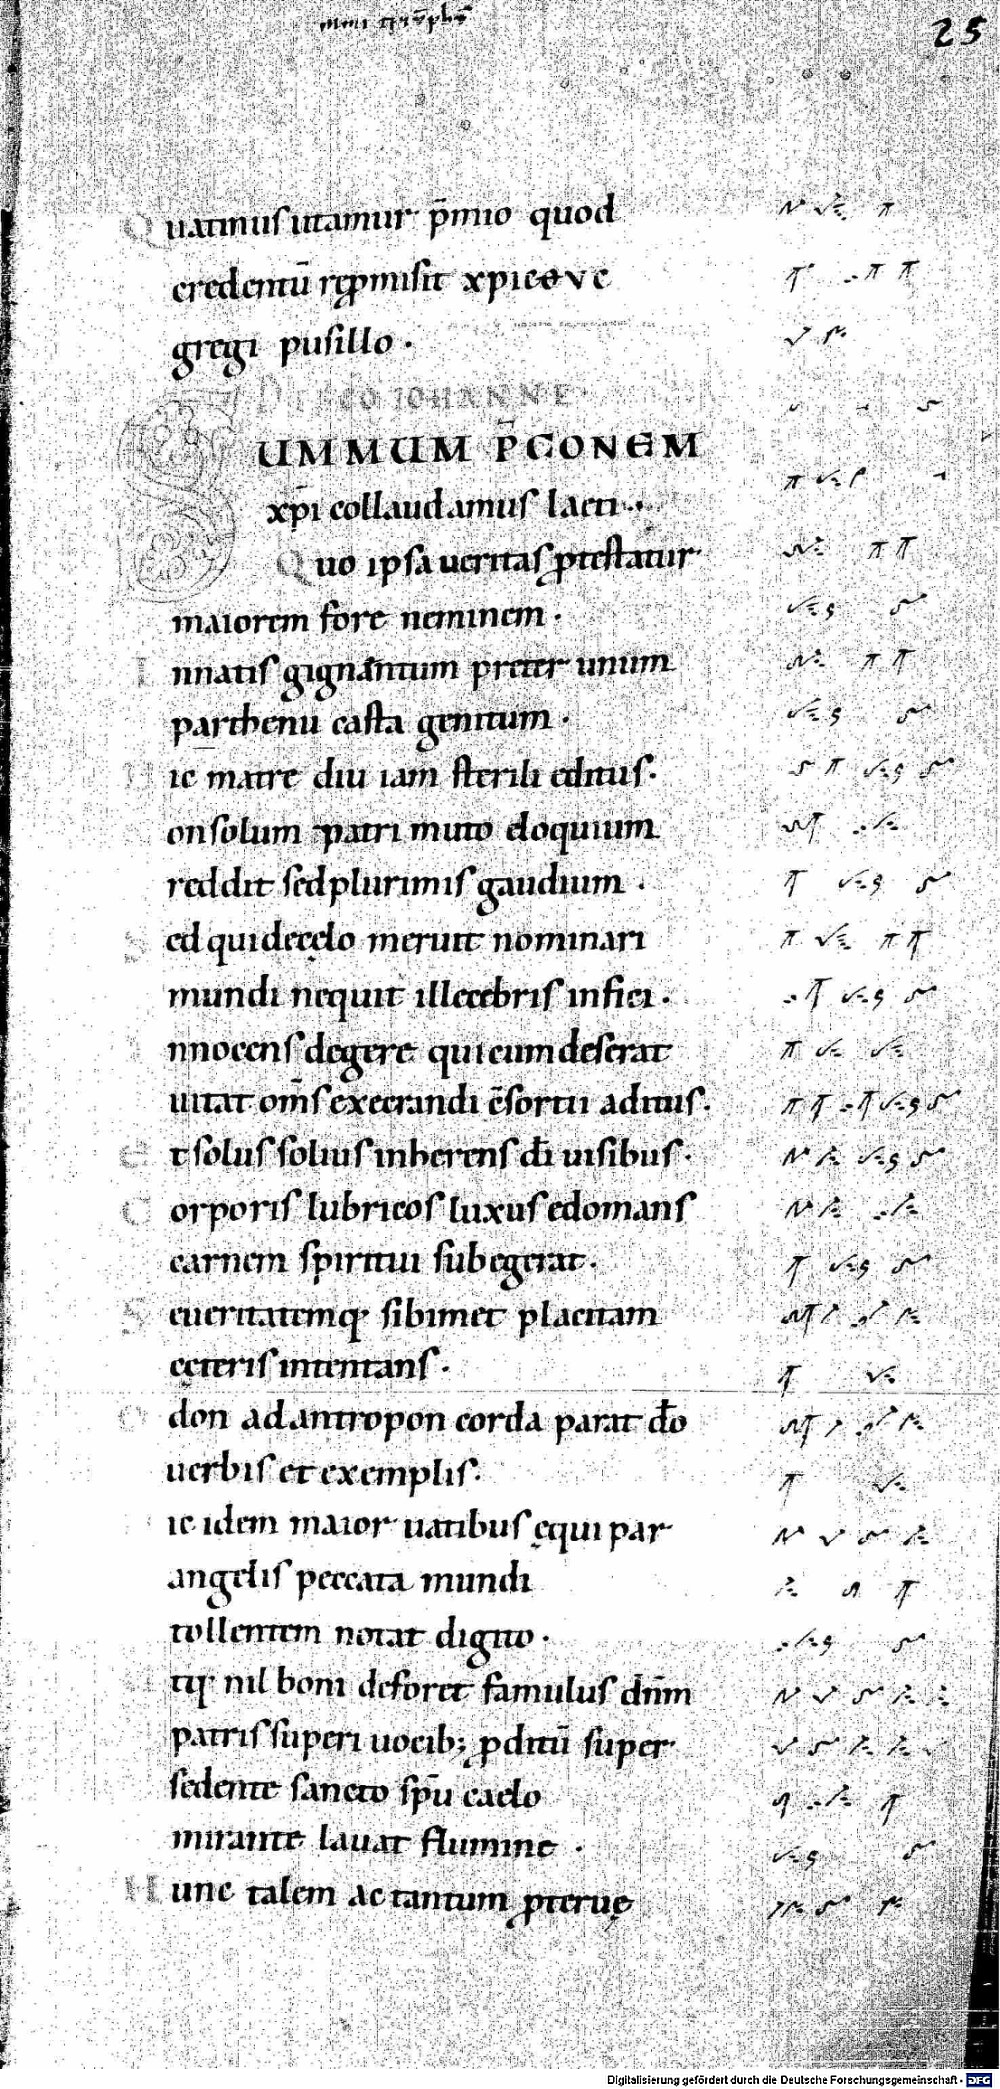 25
Quatinus utamur p̄mio quod
credentū rep̱misit xpic⊖ve
gregi pusillo ·
DE SCO IOHANNE
SUMMUM P̄CONEM
xp̄i collaudamus laeti ·
Quo ipsa ueritas ꝓtestatur
maiorem fore neminem ·
Innatis gignantum preter unum
parthenu casta genitum ·
Hic matre diu iam sterili editus ·
onsolum patri muto eloquium
reddit sed plurimis gaudium ·
Sed qui decęlo meruit nominari
mundi nequit illecebris infici ·
Innocens degere qui cum deserat
uitat om̄s execrandi c̄sortii aditus ·
et solus solius inherens dī uisibus ·
Corporis lubricos luxus edomans
carnem spiritui subegerat ·
Seueritatemq; sibimet placitam
cęteris intentans ·
Odon ad antropon corda parat dō
uerbis et exemplis ·
ic idem maior uatibus ęqui par
angelis peccata mundi
tollentem notat digito ·
tq; nil boni deforet famulus dn̄m
patris superi uocib; ꝓditū super
sedente sancto sp̄u caelo
mirante lauat flumine ·
Hunc talem ac tantum ꝓteruę
Digitalisierung gefördert durch die Deutsche Forschungsgemeinschaft - DFG